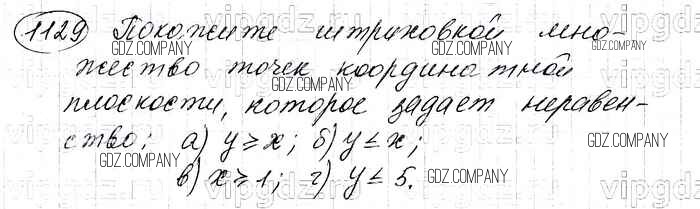 1129 Покажите штриховкой мно-
жество точек координатной
плоскости, которое задает неравен-
ство: а) y ⩾ x; б) y ≤ x;
в) x ⩾ 1; г) y ≤ 5.
GDZ.COMPANY
GDZ.COMPANY
GDZ.COMPANY
GDZ.COMPANY
GDZ.COMPANY
GDZ.COMPANY
GDZ.COMPANY
GDZ.COMPANY